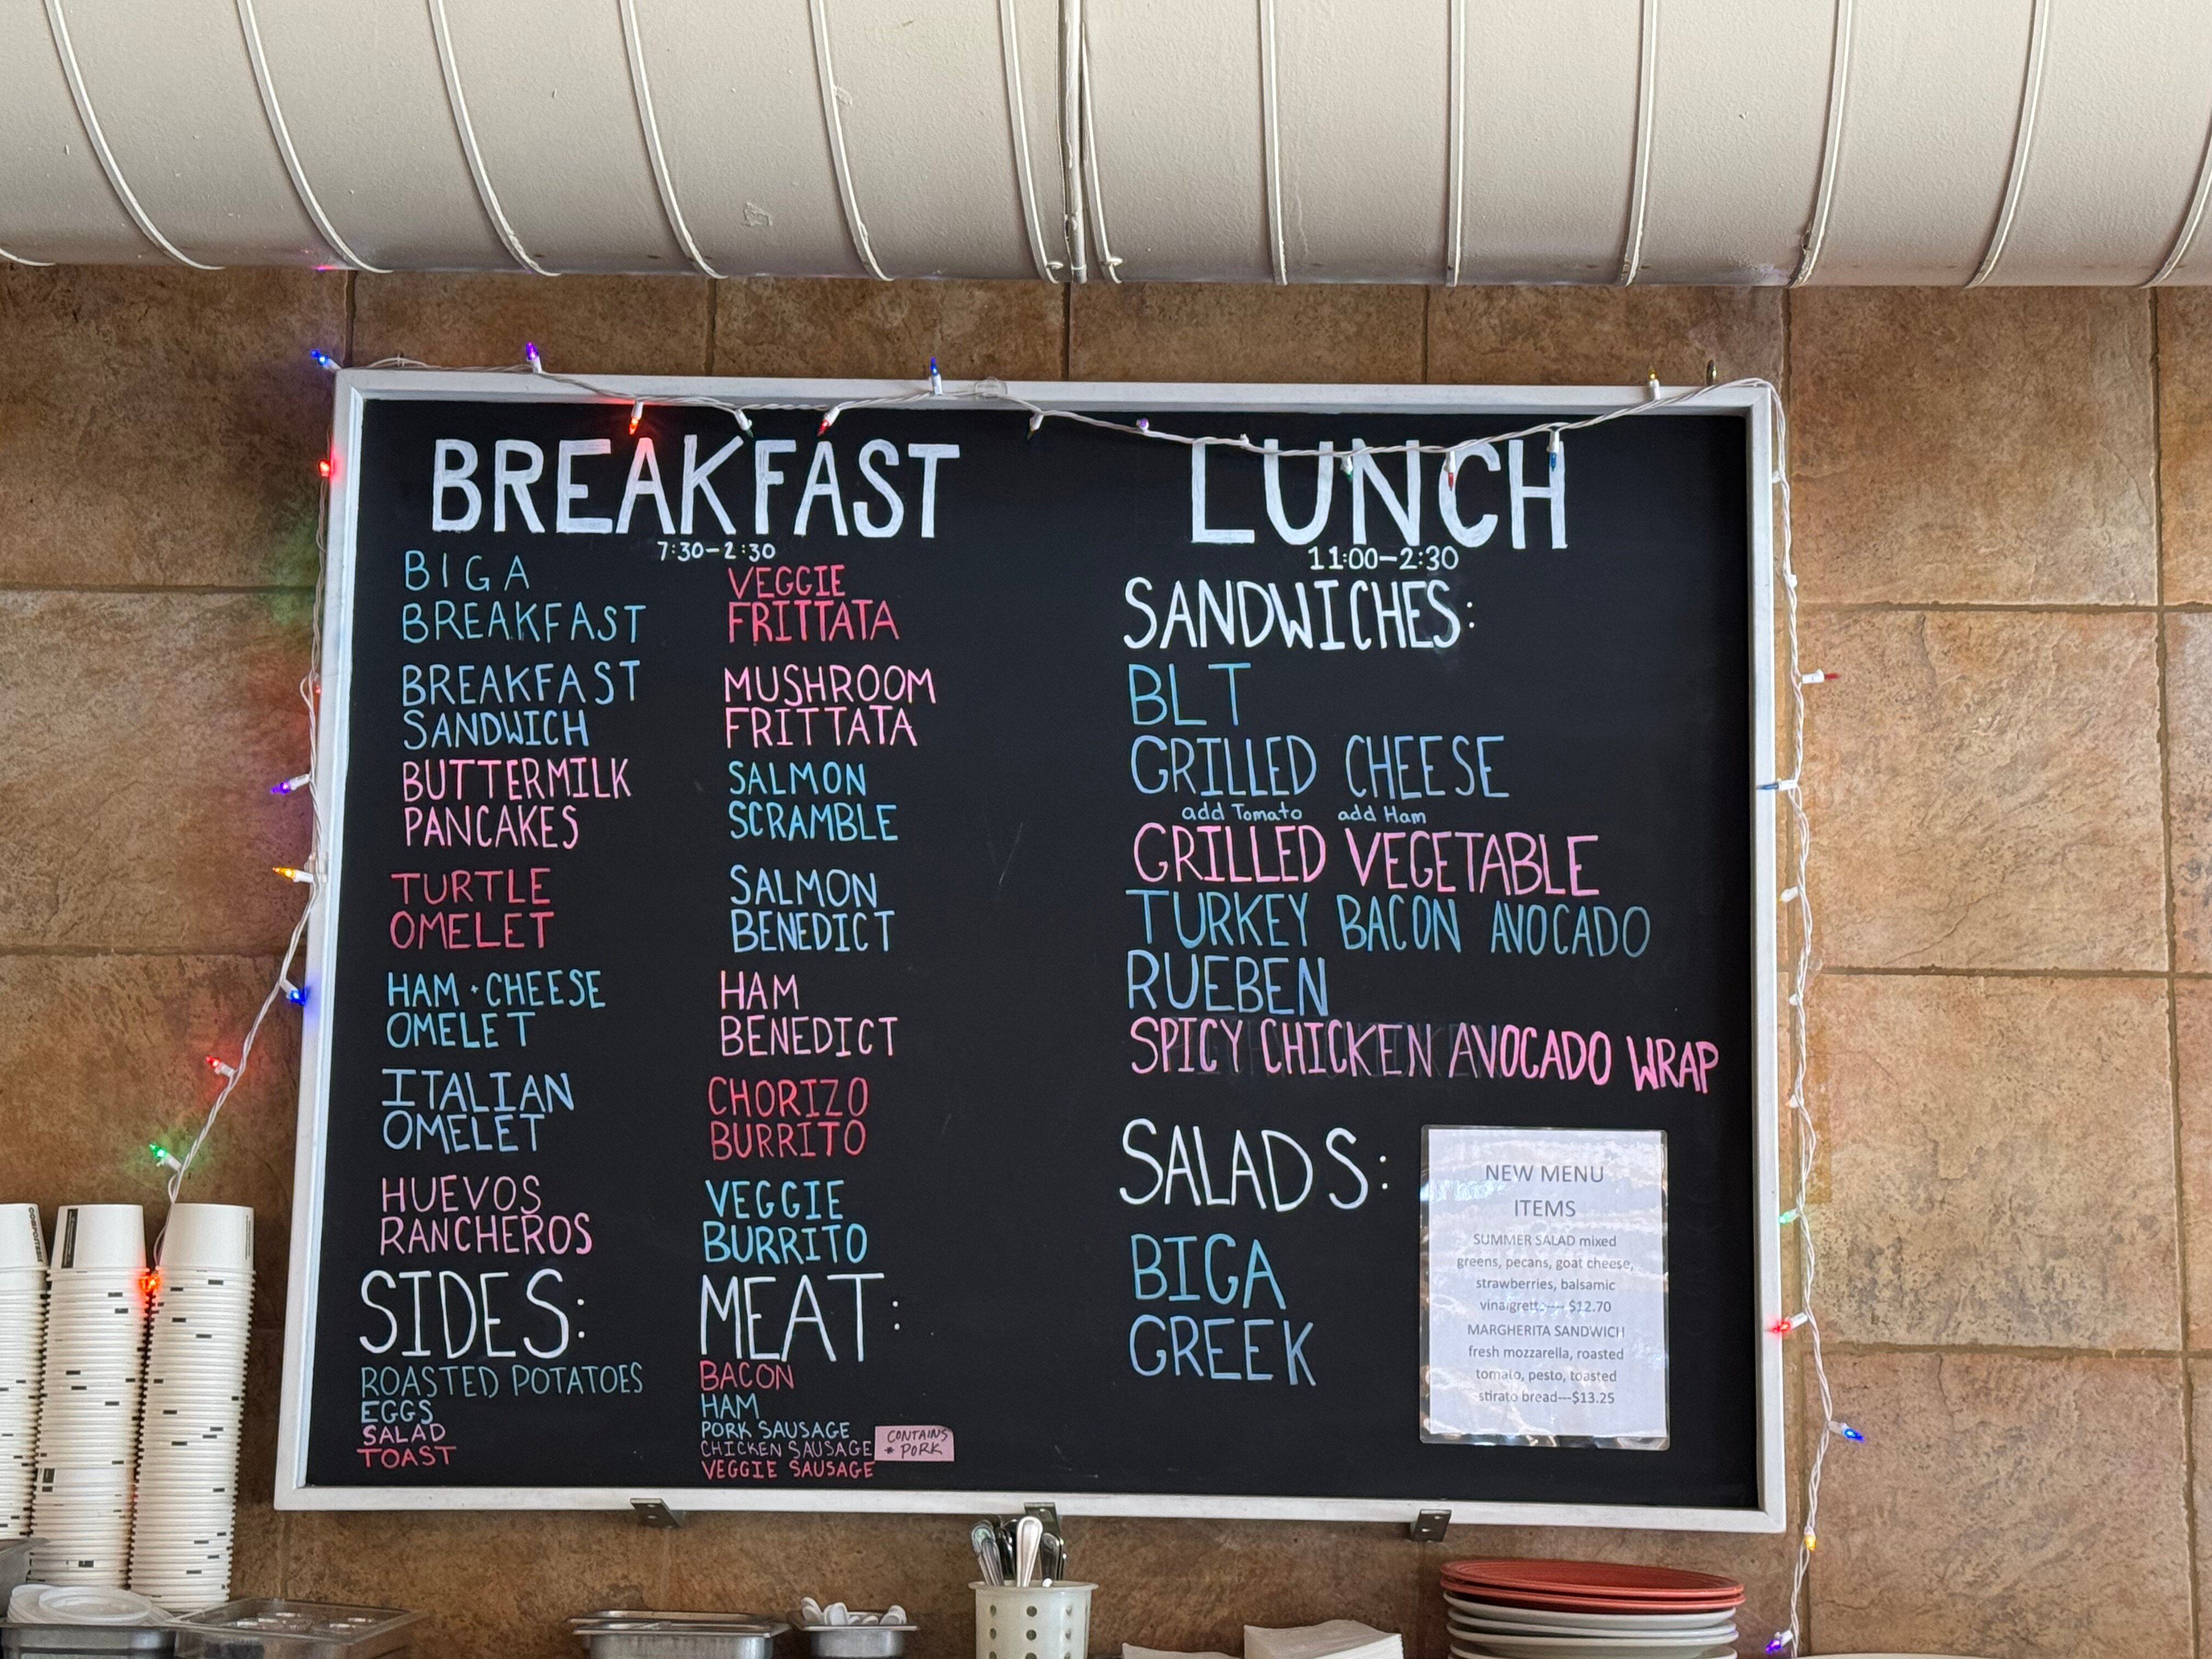 BREAKFAST
7:30-2:30
BIGA
BREAKFAST
BREAKFAST
SANDWICH
BUTTERMILK
PANCAKES
TURTLE
OMELET
HAM + CHEESE
OMELET
ITALIAN
OMELET
HUEVOS
RANCHEROS
SIDES:
ROASTED POTATOES
EGGS
SALAD
TOAST
VEGGIE
FRITTATA
MUSHROOM
FRITTATA
SALMON
SCRAMBLE
SALMON
BENEDICT
HAM
BENEDICT
CHORIZO
BURRITO
VEGGIE
BURRITO
MEAT:
BACON
HAM
PORK SAUSAGE
CHICKEN SAUSAGE
VEGGIE SAUSAGE
CONTAINS
* PORK
LUNCH
11:00-2:30
SANDWICHES:
BLT
GRILLED CHEESE
add Tomato add Ham
GRILLED VEGETABLE
TURKEY BACON AVOCADO
RUEBEN
SPICY CHICKEN AVOCADO WRAP
SALADS:
BIGA
GREEK
NEW MENU
ITEMS
SUMMER SALAD mixed
greens, pecans, goat cheese,
strawberries, balsamic
vinaigrette--- $12.70
MARGHERITA SANDWICH
fresh mozzarella, roasted
tomato, pesto, toasted
stirato bread---$13.25